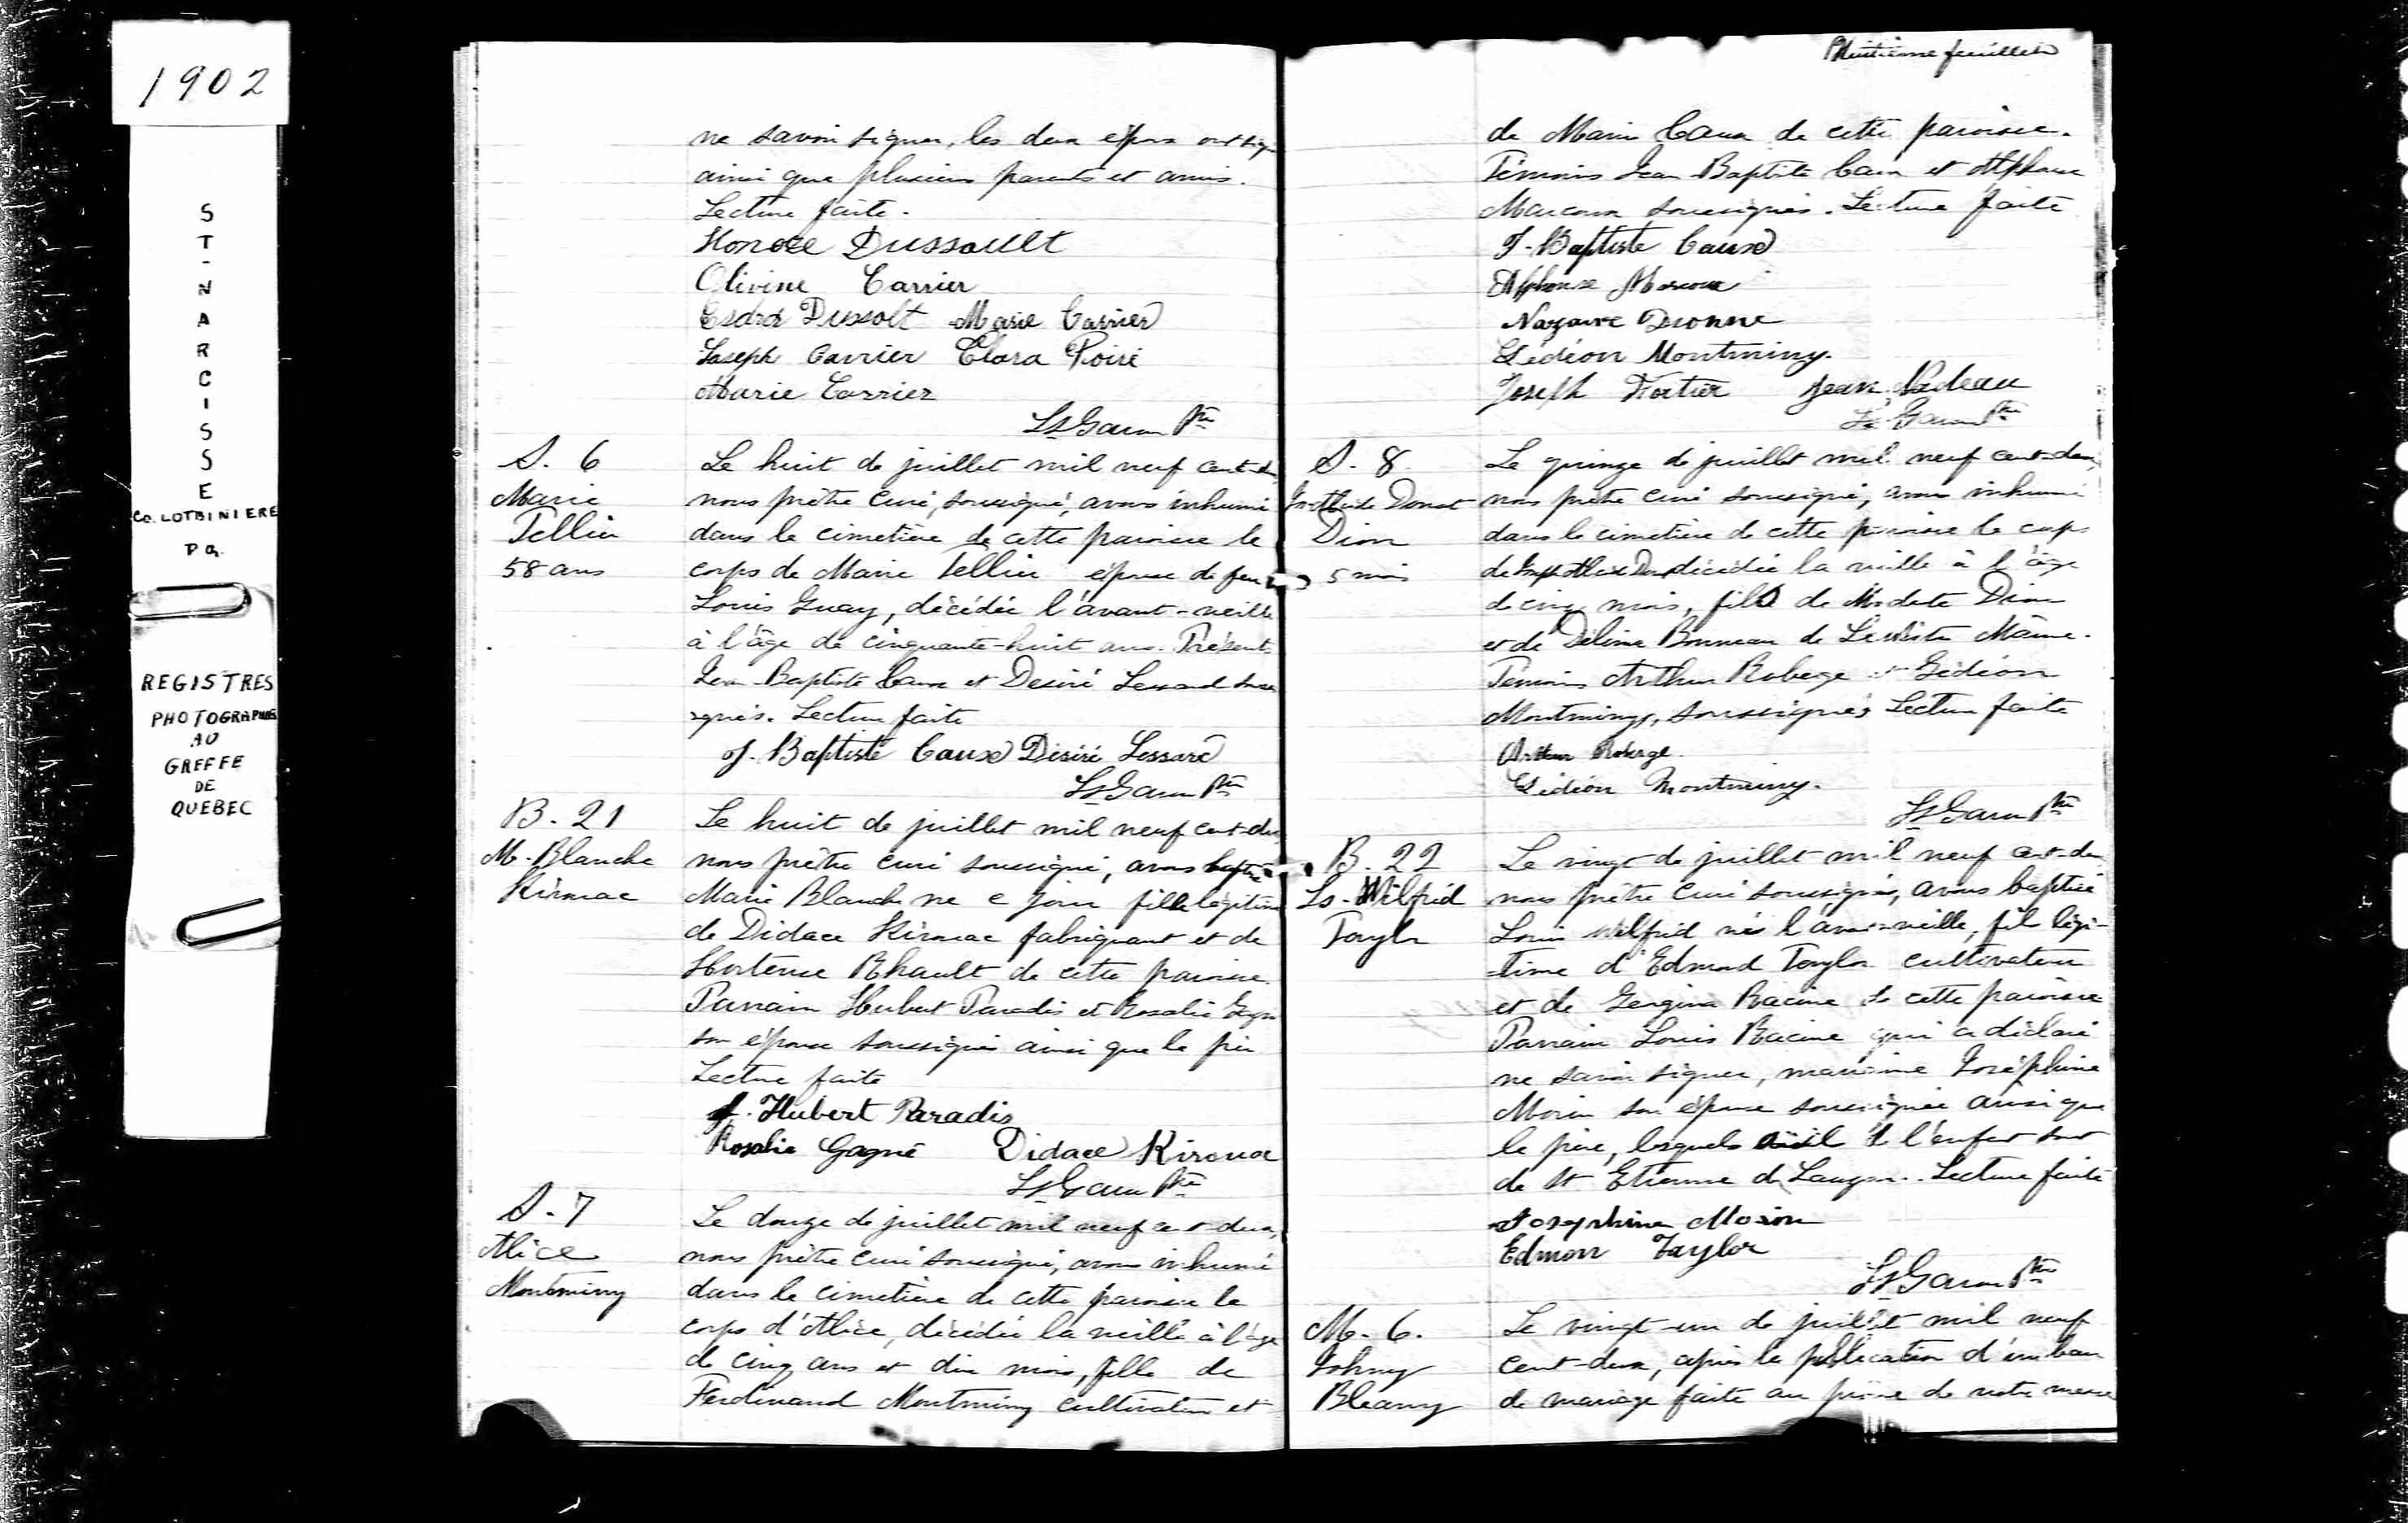 1902
ST-NARCISSE
Co. LOTBINIERE
P Q.
REGISTRES
PHOTOGRAPHIES
AU
GREFFE
DE
QUEBEC
ne savoir signer, les deux époux ont sig
ainsi que plusieurs parents et amis.
Lecture faite.
Honoré Dussault
Olivine Carrier
Esdras Dussolt Marie Carrier
Joseph Carrier Clara Poiré
Marie Carrier
Ls Garon Ptre
S. 6
Marie
Tellier
58 ans
Le huit de juillet mil neuf cent-deux
nous prêtre curé, soussigné, avons inhumé
dans le cimetière de cette paroisse le
corps de Marie Tellier épouse de feu
Louis Guay, décédée l'avant-veille
à l'âge de cinquante-huit ans. Présents
Jean-Baptiste Caux et Desiré Lessard sous
signés. Lecture faite
J. Baptiste Caux Désiré Lessard
Ls Garon Ptre
B. 21
M. Blanche
Kirouac
Le huit de juillet mil neuf cent-deux
nous prêtre curé soussigné, avons baptisé
Marie Blanche née ce jour fille légitime
de Didace Kirouac fabriquant et de
Hortense Rhault de cette paroisse.
Parrain Hubert Paradis et Rosalie Gagné
son épouse soussignés ainsi que le père
Lecture faite
J. Hubert Paradis
Rosalie Gagné Didace Kirouac
Ls Garon Ptre
S. 7
Alice
Montminy
Le douze de juillet mil neuf cent deux,
nous prêtre curé soussigné, avons inhumé
dans le cimetière de cette paroisse le
corps d'Alice, décédée la veille à l'âge
de cinq ans et dix mois, fille de
Ferdinand Montminy cultivateur et
Huitième feuillet
de Marie Caux de cette paroisse.
Témoins Jean-Baptiste Caux et Alphonse
Marcoux soussignés. Lecture faite
J. Baptiste Caux
Alphonse Marcoux
Nazaire Dionne
Gédéon Montminy.
Joseph Fortier Jean Nadeau
Ls Garon Ptre
S. 8
Donat
Dion
5 mois
Le quinze de juillet mil neuf cent-deux,
nous prêtre curé soussigné, avons inhumé
dans le cimetière de cette paroisse le corps
de décédé la veille à l'âge
de cinq mois, fils de Modeste Dion
et de Délima Bonneau de Lewiston Maine.
Témoins Arthur Roberge et Gédéon
Montminy, soussignés Lecture faite
Arthur Roberge
Gédéon Montminy.
Ls Garon Ptre
B. 22
Ls-Wilfrid
Taylor
Le vingt de juillet mil neuf cent-deux
nous prêtre curé soussigné, avons baptisé
Louis Wilfrid né l'avant-veille, fils légi-
-time d'Edmond Taylor cultivateur
et de Georgina Racine de cette paroisse
Parrain Louis Racine qui a déclaré
ne savoir signer, marraine Joséphine
Morin son épouse soussignée ainsi que
le père, lesquels l'enfant sont
de St Etienne de Lauzon. Lecture faite
Josephine Morin
Edmon Taylor
Ls Garon Ptre
M. 6.
Johnny
Bleany
Le vingt-un de juillet mil neuf
cent-deux, après la publication d'un ban
de mariage faite au prône de notre messe